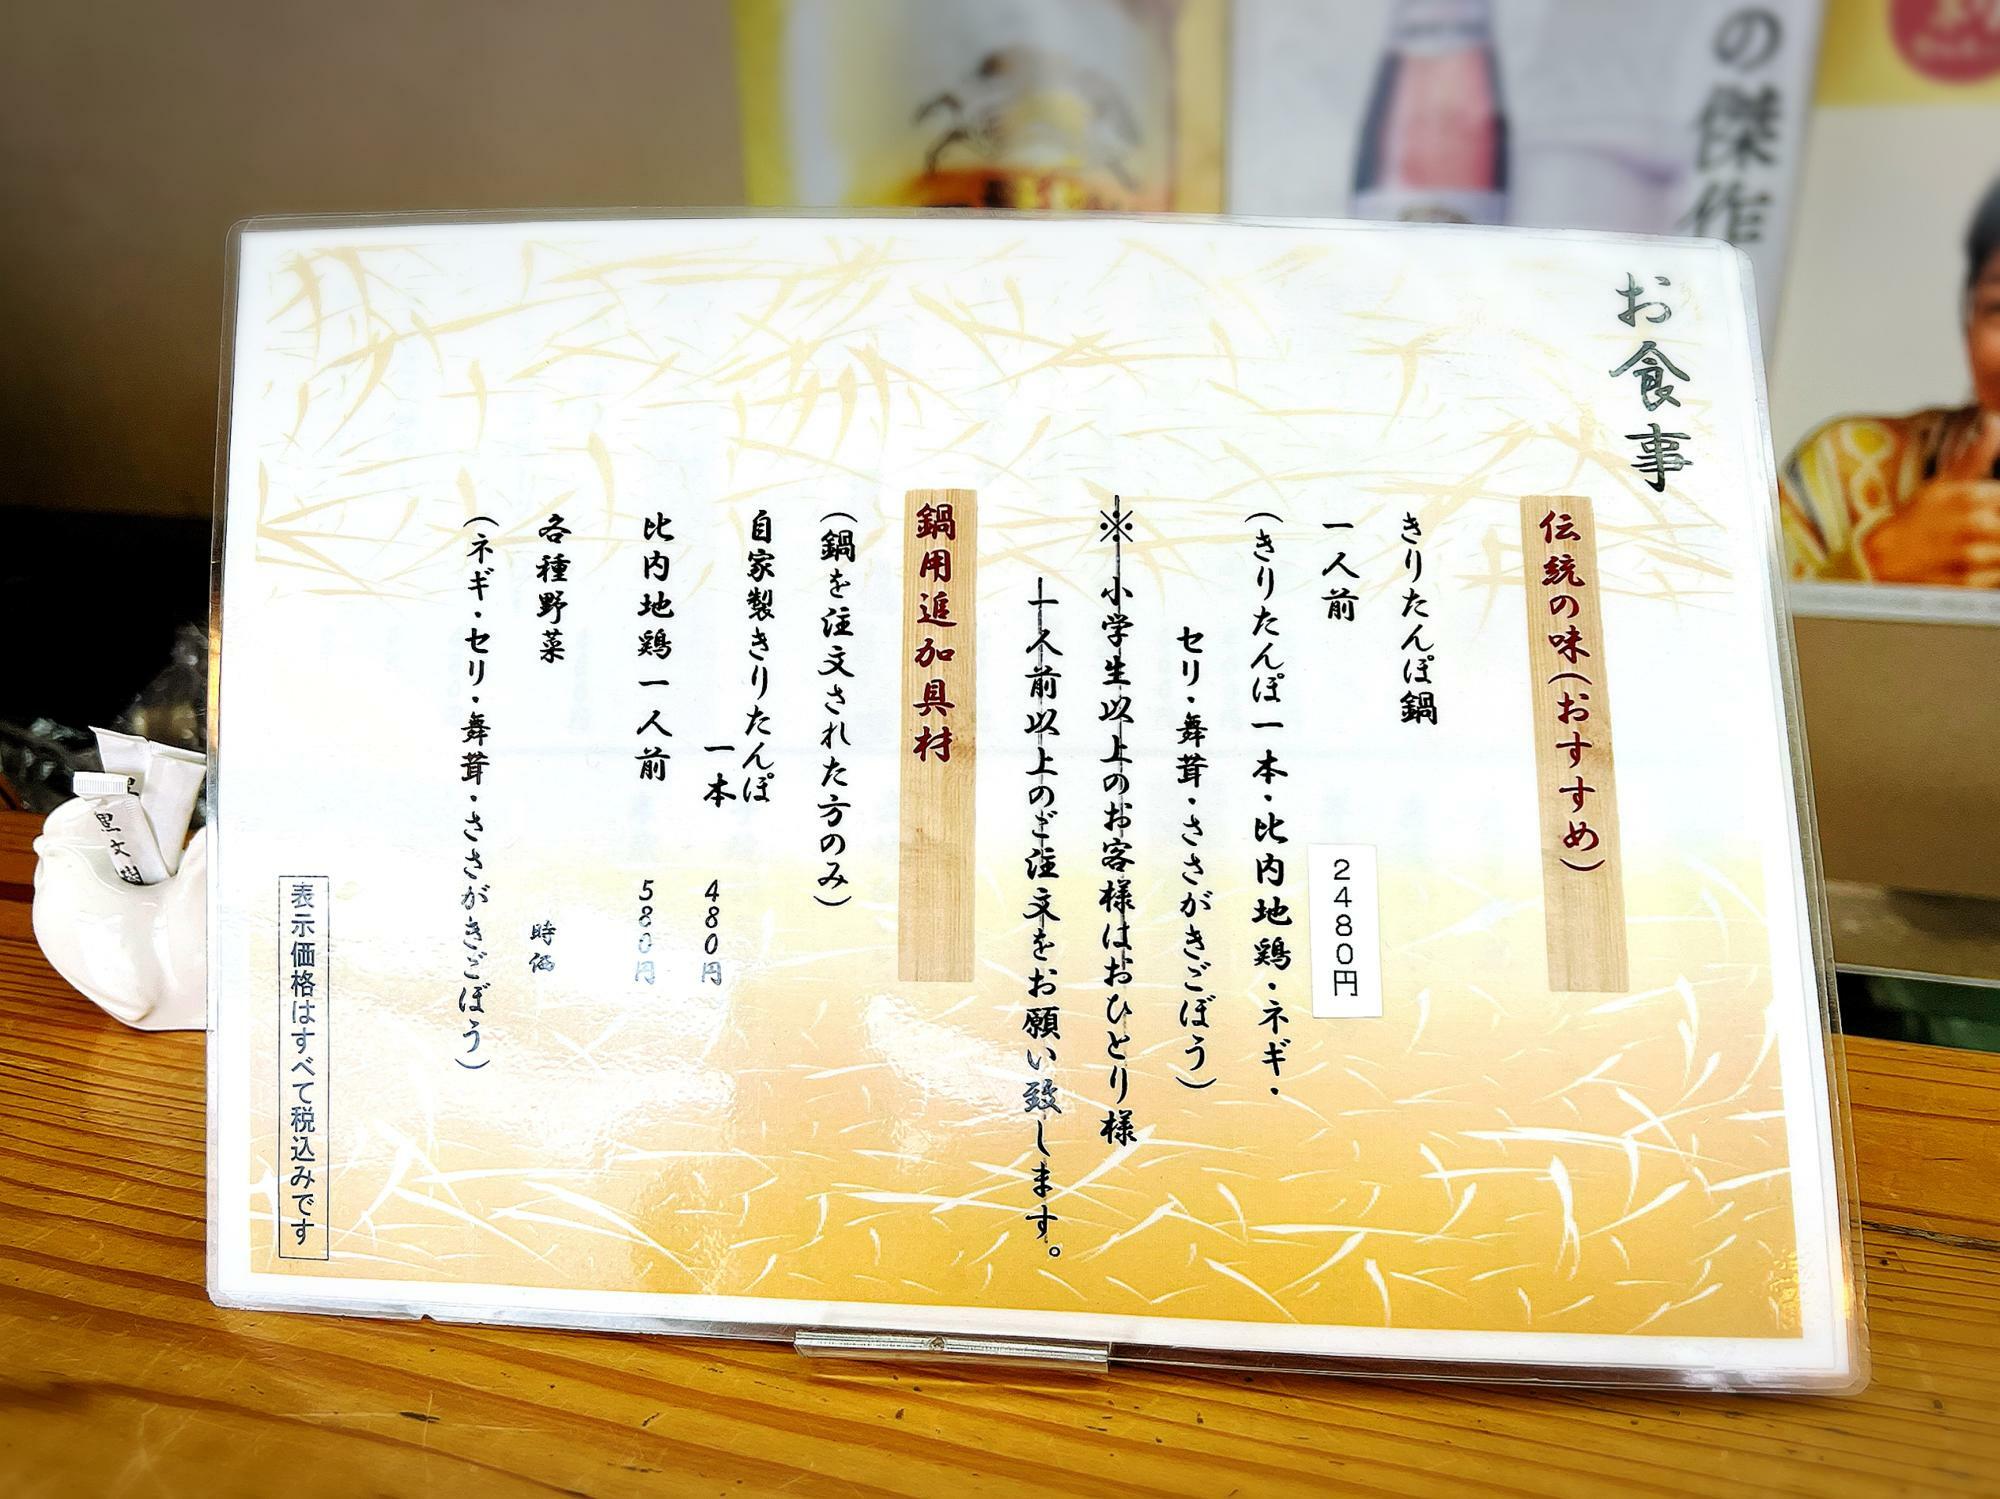 お食事
伝統の味(おすすめ)
きりたんぽ鍋
一人前
2480円
(きりたんぽ一本・比内地鶏・ネギ・
セリ・舞茸・ささがきごぼう)
※小学生以上のお客様はおひとり様
一人前以上のご注文をお願い致します。
鍋用追加具材
(鍋を注文された方のみ)
自家製きりたんぽ
一本 480円
比内地鶏一人前 580円
各種野菜 時価
(ネギ・セリ・舞茸・ささがきごぼう)
表示価格はすべて税込みです
の傑作
黒文樹